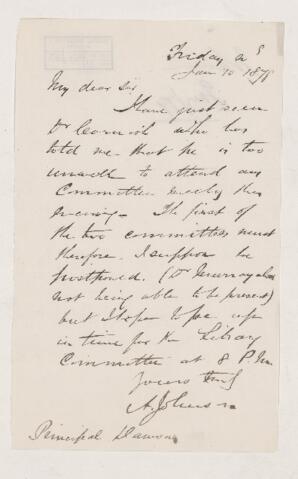 Friday
Jan 10 1879
My dear Sir
I have just seen
Dr Cornish who has
told me that he is too
unwell to attend any
Committee meeting this
evening. The first of
the two committees must
therefore I suppose be
postponed. (Dr Murray also
not being able to be present)
but I hope to be
in time for the Library
Committee at 8 P.m.
Yours truly
A Johnson
Principal Dawson